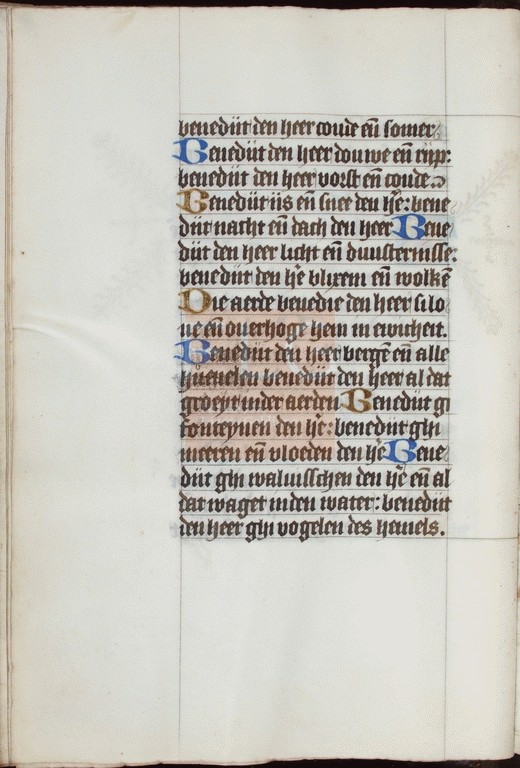 benediit den heer coude eñ somer
Benediit den heer douwe eñ rijp:
benediit den heer vorst eñ coude
Benediit iis eñ snee den hē: bene
diit nacht eñ dach den heer Bene
diit den heer licht eñ duusternisse:
benediit den hē blixem eñ wolkē
Die aerde benedie den heer si lo
ue eñ ouerhoge hem in ewicheit.
Benediit den heer bergē eñ alle
huevelen benediit den heer al dat
groeyt inder aerden Benediit gi
fonteynen den hē: benediit ghi
meeren eñ vloeden den hē Bene
diit ghi waluisschen den hē eñ al
dat waget inden water: benediit
den heer ghi vogelen des hemels.